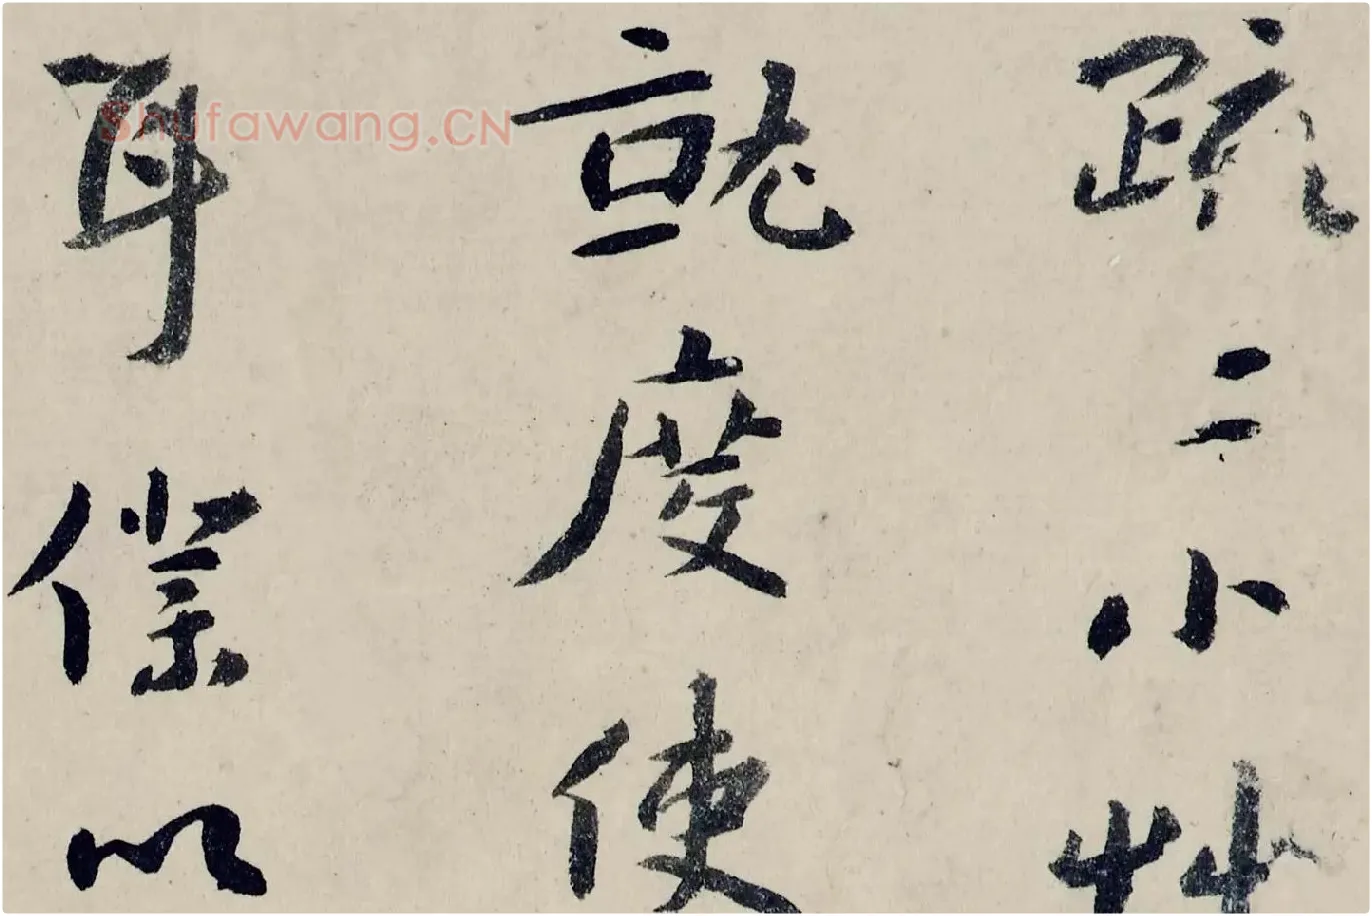 疏二小艸
就度使
耳僕以
Shufawang.CN